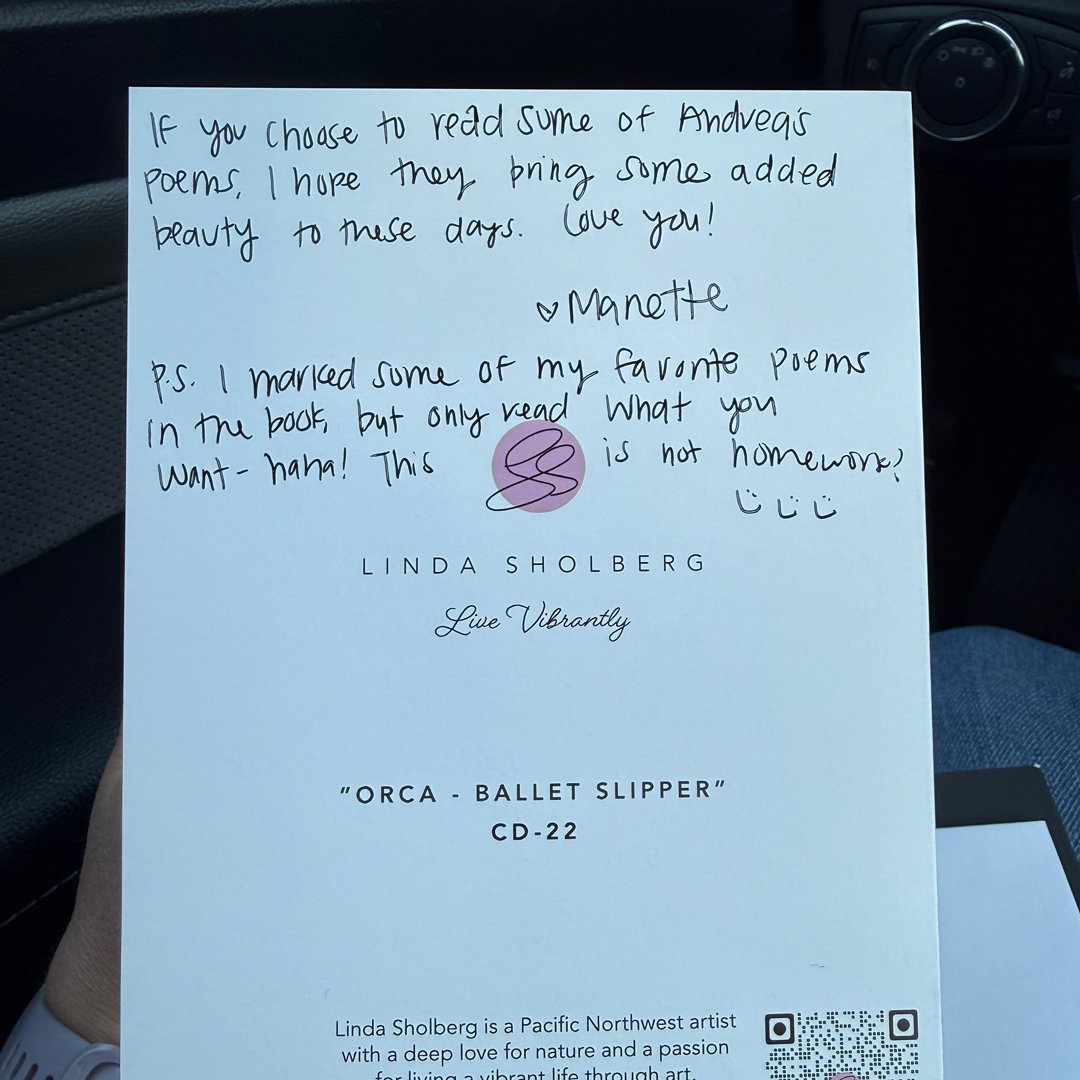 If you choose to read some of Andrea's
poems, I hope they bring some added
beauty to these days. Love you!
♡ Manette
P.S. I marked some of my favorite poems
in the book, but only read what you
want - haha! This is not homework!
LINDA SHOLBERG
Live Vibrantly
"ORCA - BALLET SLIPPER"
CD-22
Linda Sholberg is a Pacific Northwest artist
with a deep love for nature and a passion
for living a vibrant life through art.